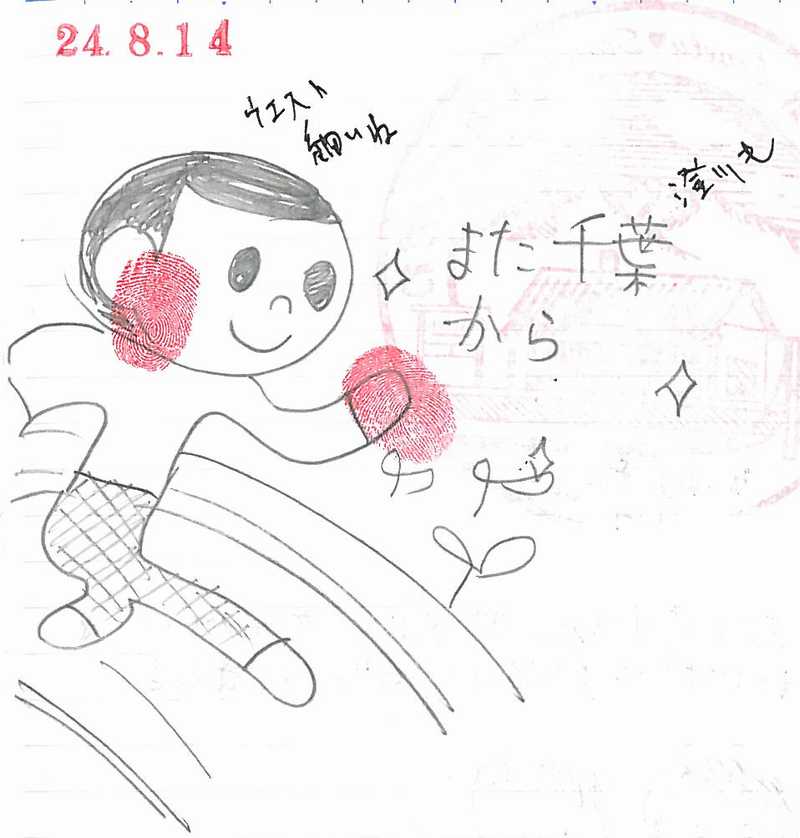 24.8.14
ウエスト
細いね
また千葉
から